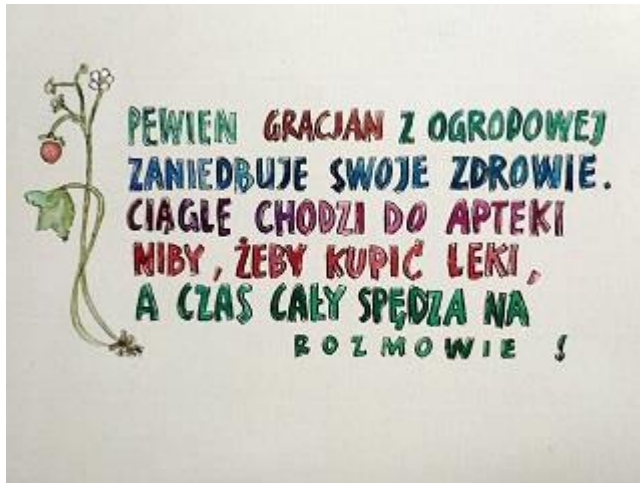 PEWIEN GRACJAN Z OGRODOWEJ
ZANIEDBUJE SWOJE ZDROWIE.
CIĄGLE CHODZI DO APTEKI
NIBY, ŻEBY KUPIĆ LEKI,
A CZAS CAŁY SPĘDZA NA
ROZMOWIE !